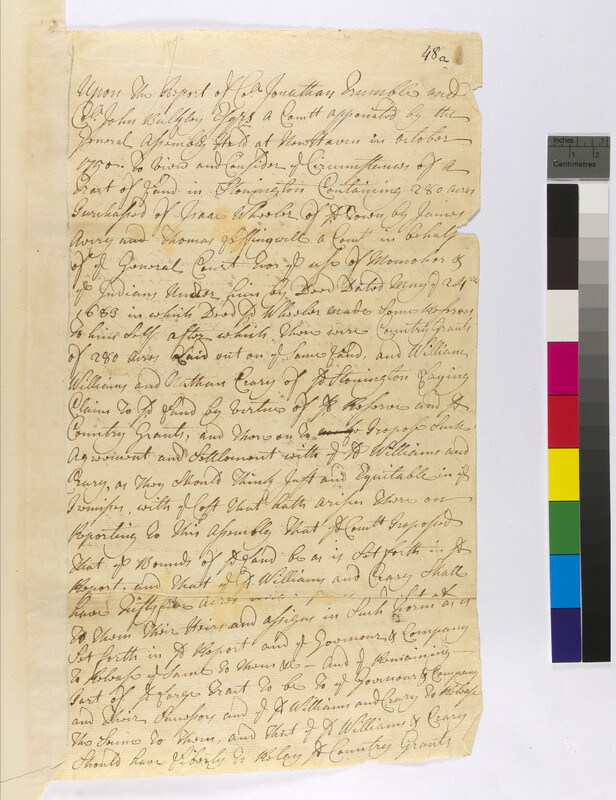 48a
Upon The Report of Coll. Jonathan Trumble and
Coll. John Bulkley Esqrs a Comtt appointed by the
General Assembly Held at Newhaven in october
1750. To View and Consider ye Circumstances of a
Tract of Land in Stonington Containing 280 acres
Purchased of Isaac Wheeler of sd Town, by James
Avery and Thomas Leffingwell a Comtt in behalf
of ye General Court for ye use of Momohor &
ye Indians Under him by Deed Dated May ye 24th
1683 in which Deed sd Wheeler made Some Reserves
To him Self after which There were Country Grants
of 280 acres Laid out on ye Same Land, and William
Williams and Nathan Crary of sd Stonington Laying
Claim To sd Land by virtue of sd Reserve and sd
Country Grants, and There on To Propose Such
Agreement and Settlement with ye sd Williams and
Crary, as They Should Think Just and Equitable in ye
Premises, with ye Cost That hath arisen There on
Reporting To This Assembly That sd Comtt Proposed
That ye Bounds of sd Land be as is Set forth in sd
Report. and That ye sd Williams and Crary Shall
have fifty acres
To Them Their Heirs and assigns in Such form as is
Set forth in sd Report and ye Governour & Company
To Release ye Same To Them &c - And ye Remaining
Part of sd Large Tract To be To ye Governour & Company
and Their Successors and ye sd Williams and Crary To Release
The Same To Them, and That ye sd Williams & Crary
Should have Liberty To Relay sd Country Grants
inches
1
2
Centimetres